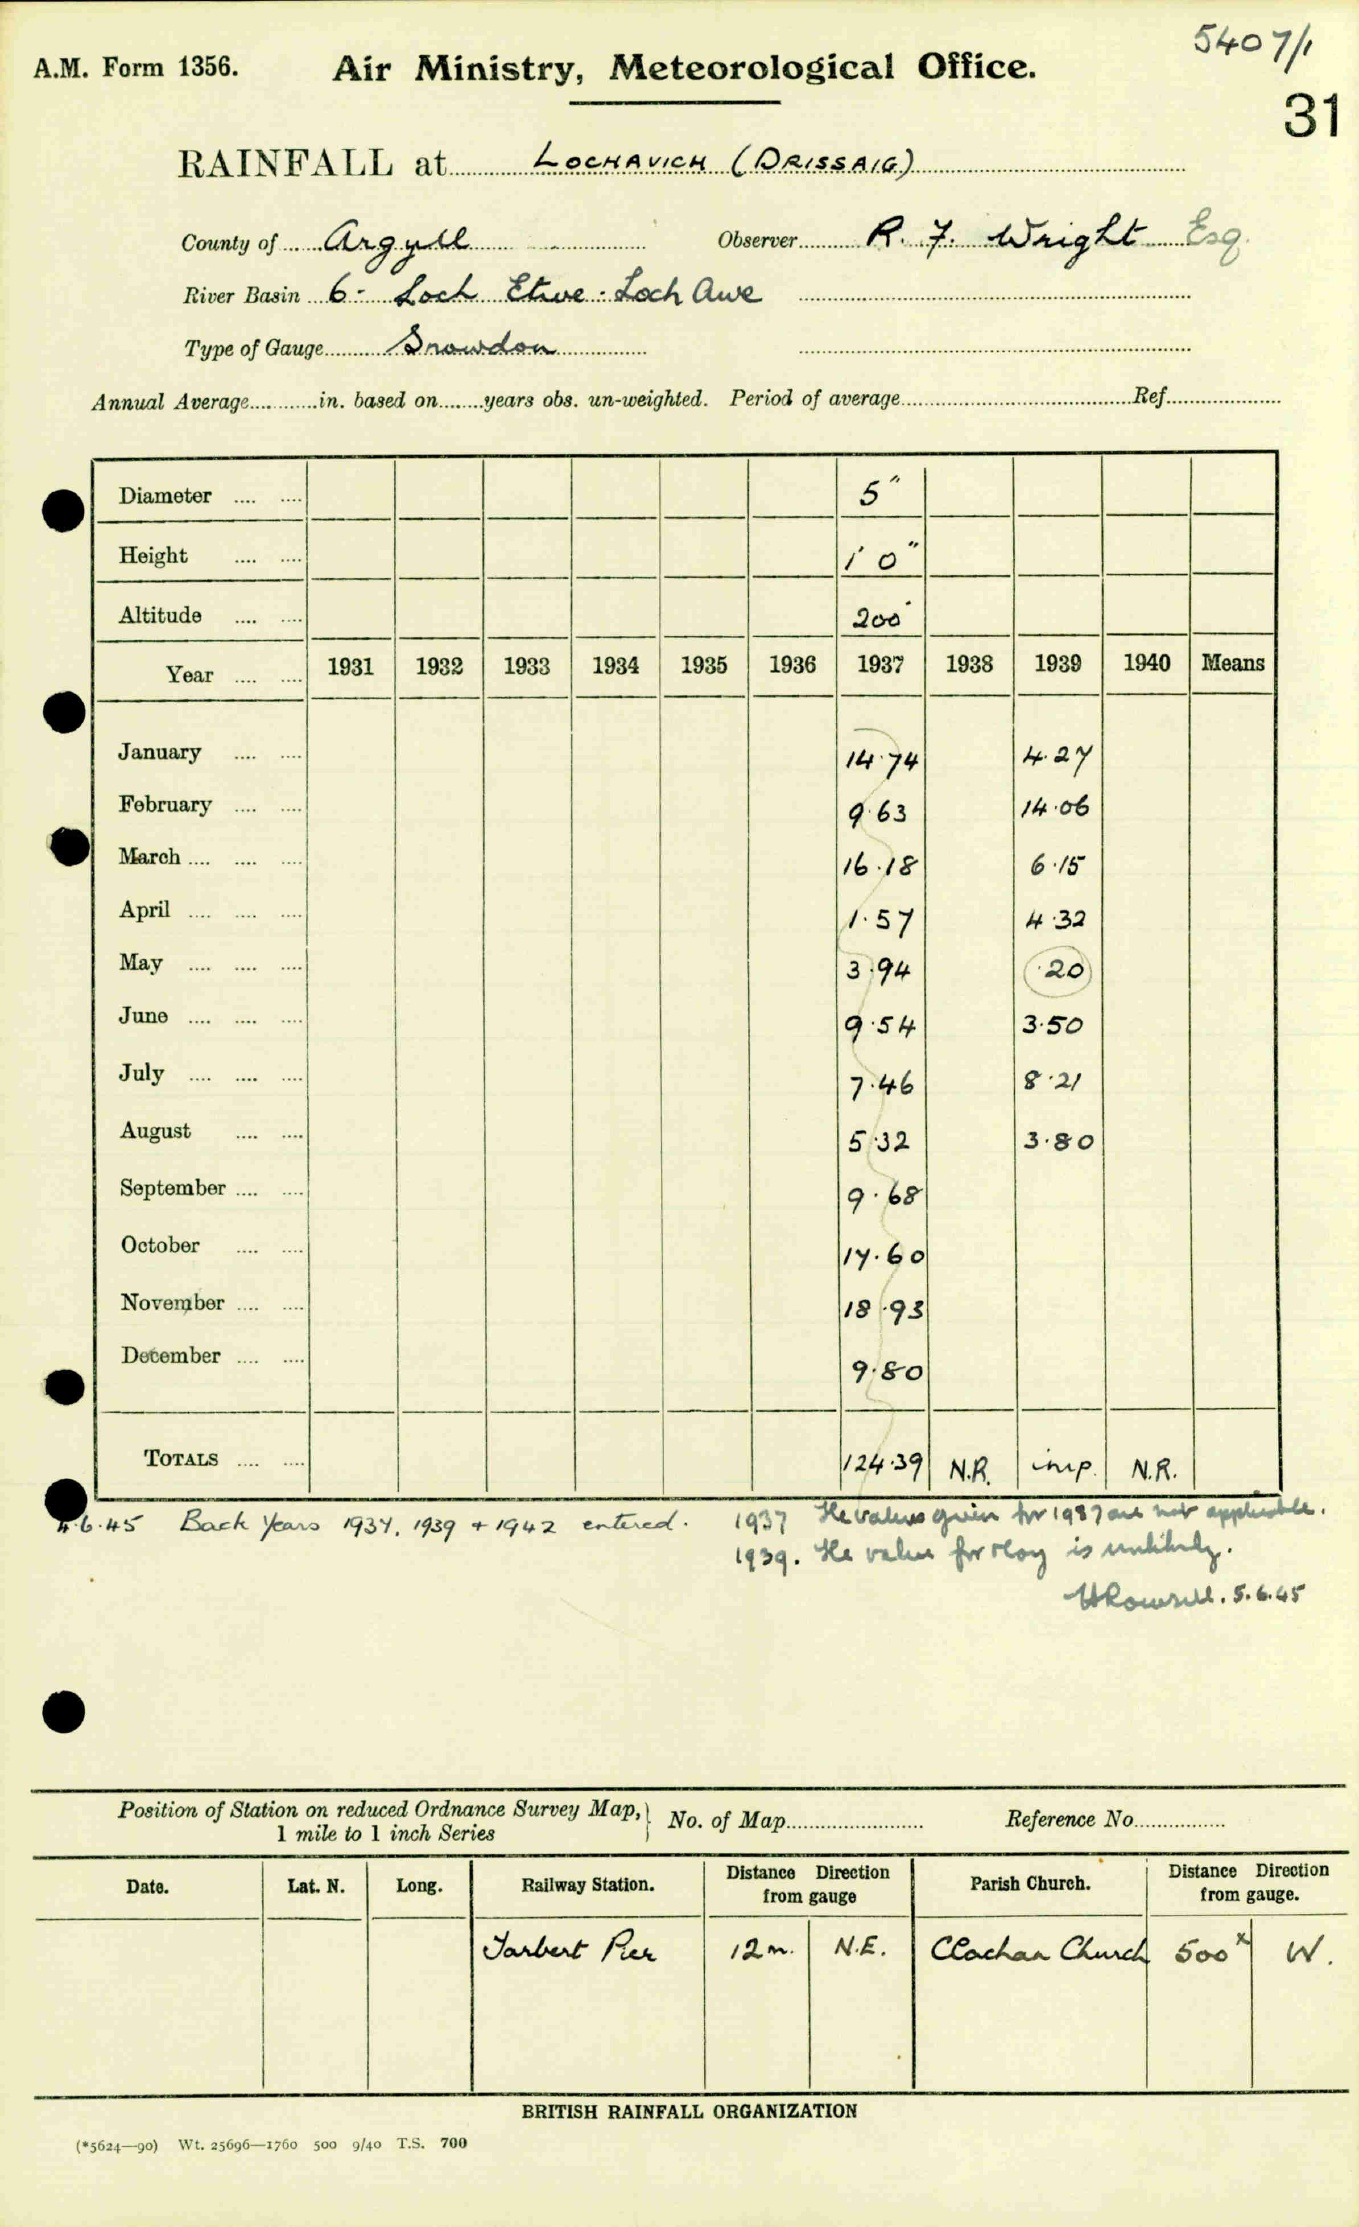 5407/1
A.M. Form 1356. Air Ministry, Meteorological Office.
31
RAINFALL at LOCHAVICH (DRISSAIG)
County of Argyll Observer R. F. Wright Esq.
River Basin 6 - Loch Etive - Loch Awe
Type of Gauge Snowdon
Annual Average............in. based on........years obs. un-weighted. Period of average........ Ref........
Diameter .... .... 5"
Height .... .... 1' 0"
Altitude .... .... 200'
Year .... .... 1931 1932 1933 1934 1935 1936 1937 1938 1939 1940 Means
January .... .... 14.74 4.27
February .... .... 9.63 14.06
March .... .... .... 16.18 6.15
April .... .... .... 1.57 4.32
May .... .... .... 3.94 .20
June .... .... .... 9.54 3.50
July .... .... .... 7.46 8.21
August .... .... 5.32 3.80
September .... .... 9.68
October .... .... 17.60
November .... .... 18.93
December .... .... 9.80
TOTALS .... .... 124.39 N.R. imp. N.R.
4.6.45 Back Years 1937, 1939 + 1942 entered. 1937 The values given for 1937 are not applicable.
1939. The value for May is unlikely.
5.6.45
Position of Station on reduced Ordnance Survey Map, } No. of Map........ Reference No........
1 mile to 1 inch Series
Date. Lat. N. Long. Railway Station. Distance Direction from gauge Parish Church. Distance Direction from gauge.
Tarbert Pier 12 m. N.E. Clachan Church 500x W.
BRITISH RAINFALL ORGANIZATION
(*5624—90) Wt. 25696—1760 500 9/40 T.S. 700